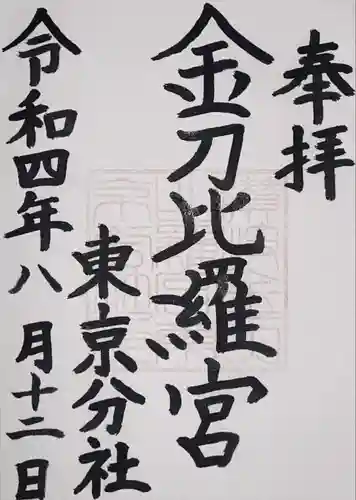 奉拝
金刀比羅宮
東京分社
令和四年八月十二日